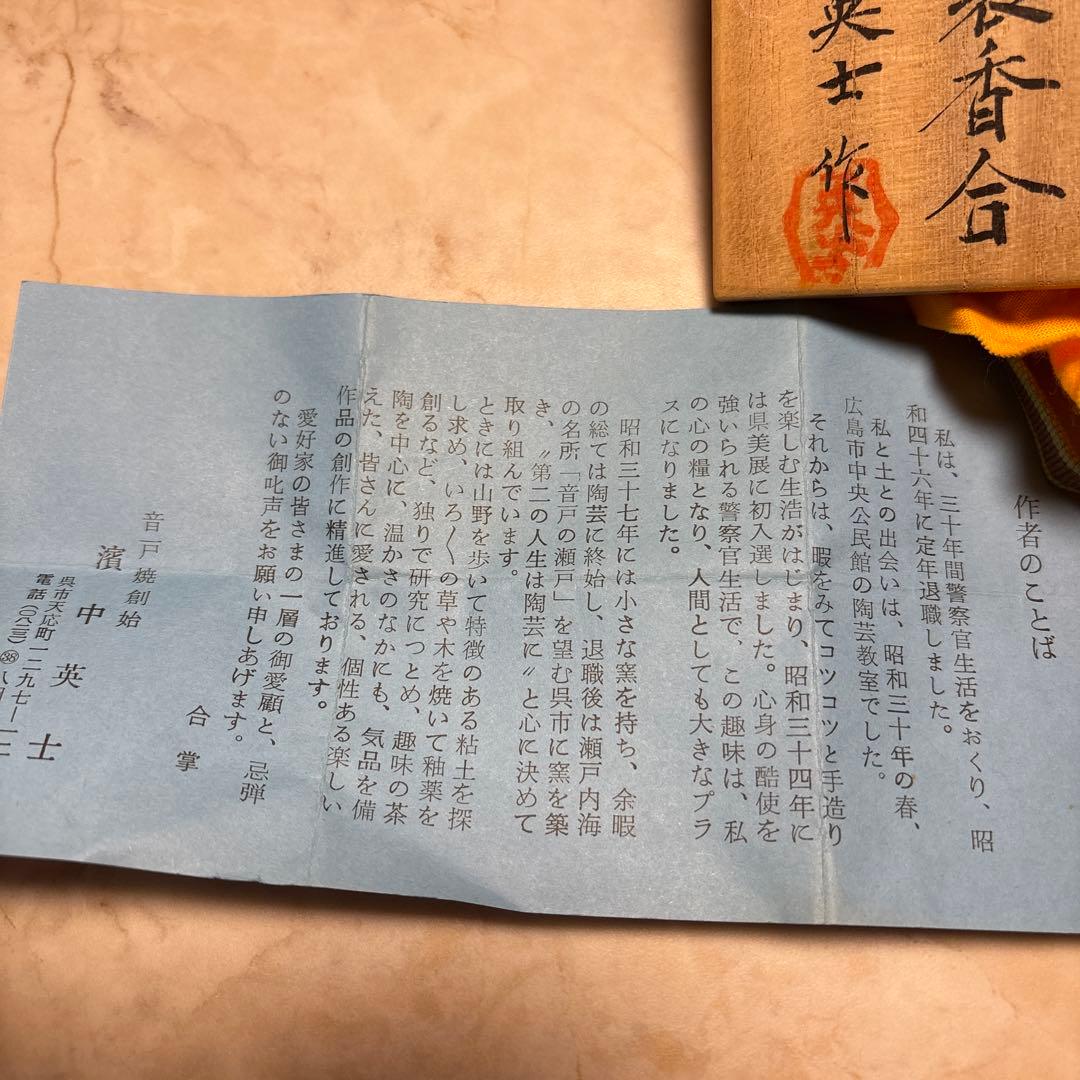 香合
英士作
作者のことば
私は、三十年間警察官生活をおくり、昭
和四十六年に定年退職しました。
私と土との出会いは、昭和三十年の春、
広島市中央公民館の陶芸教室でした。
それからは、暇をみてコツコツと手造り
を楽しむ生活がはじまり、昭和三十四年に
は県美展に初入選しました。心身の酷使を
強いられる警察官生活で、この趣味は、私
の心の糧となり、人間としても大きなプラ
スになりました。
昭和三十七年には小さな窯を持ち、余暇
の総ては陶芸に終始し、退職後は瀬戸内海
の名所「音戸の瀬戸」を望む呉市に窯を築
き、〝第二の人生は陶芸に〟と心に決めて
取り組んでいます。
ときには山野を歩いて特徴のある粘土を探
し求め、いろ〳〵の草や木を焼いて釉薬を
創るなど、独りで研究につとめ、趣味の茶
陶を中心に、温かさのなかにも、気品を備
えた、皆さんに愛される、個性ある楽しい
作品の創作に精進しております。
愛好家の皆さまの一層の御愛顧と、忌弾
のない御叱声をお願い申しあげます。
合掌
音戸焼創始
濱中英士
呉市天応町一二九七—一
電話(〇八二三)㊳八